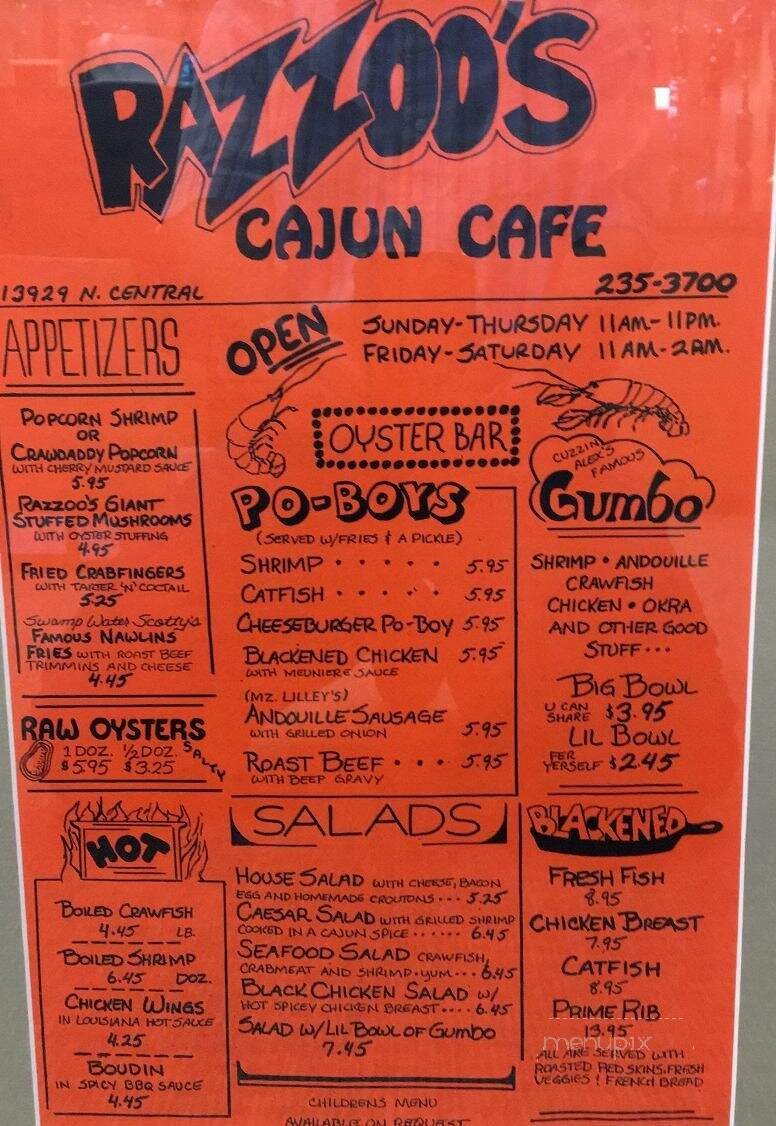 RAZZOO'S
CAJUN CAFE
13929 N. CENTRAL
235-3700
APPETIZERS
POPCORN SHRIMP
OR
CRAWDADDY POPCORN
WITH CHERRY MUSTARD SAUCE
5.95
RAZZOO'S GIANT
STUFFED MUSHROOMS
WITH OYSTER STUFFING
4.95
FRIED CRABFINGERS
WITH TARTER 'N' COCTAIL
5.25
Swamp Water Scotty's
FAMOUS NAWLINS
FRIES WITH ROAST BEEF
TRIMMINS AND CHEESE
4.45
RAW OYSTERS
1 DOZ. ½ DOZ. SALTY
$5.95 $3.25
HOT
BOILED CRAWFISH
4.45 LB.
BOILED SHRIMP
6.45 DOZ.
CHICKEN WINGS
IN LOUISIANA HOT SAUCE
4.25
BOUDIN
IN SPICY BBQ SAUCE
4.45
OPEN
SUNDAY-THURSDAY 11AM-11PM.
FRIDAY-SATURDAY 11AM-2AM.
OYSTER BAR
PO-BOYS
(SERVED W/FRIES & A PICKLE)
SHRIMP • • • • • 5.95
CATFISH • • • • • 5.95
CHEESEBURGER PO-BOY 5.95
BLACKENED CHICKEN 5.95
WITH MEUNIERE SAUCE
(MZ. LILLEY'S)
ANDOUILLE SAUSAGE
WITH GRILLED ONION 5.95
ROAST BEEF • • • 5.95
WITH BEEF GRAVY
SALADS
HOUSE SALAD WITH CHEESE, BACON
EGG AND HOMEMADE CROUTONS ... 5.25
CAESAR SALAD WITH GRILLED SHRIMP
COOKED IN A CAJUN SPICE ...... 6.45
SEAFOOD SALAD CRAWFISH,
CRABMEAT AND SHRIMP•YUM... 6.45
BLACK CHICKEN SALAD W/
HOT SPICEY CHICKEN BREAST.... 6.45
SALAD W/LIL BOWL OF GUMBO
7.45
CHILDRENS MENU
AVAILABLE ON REQUEST
CUZZIN
ALEX'S
FAMOUS
Gumbo
SHRIMP • ANDOUILLE
CRAWFISH
CHICKEN • OKRA
AND OTHER GOOD
STUFF...
BIG BOWL
U CAN
SHARE $3.95
LIL BOWL
FER
YERSELF $2.45
BLACKENED
FRESH FISH
8.95
CHICKEN BREAST
7.95
CATFISH
8.95
PRIME RIB
13.95
menupix
ALL ARE SERVED WITH
ROASTED RED SKINS, FRESH
VEGGIES & FRENCH BREAD